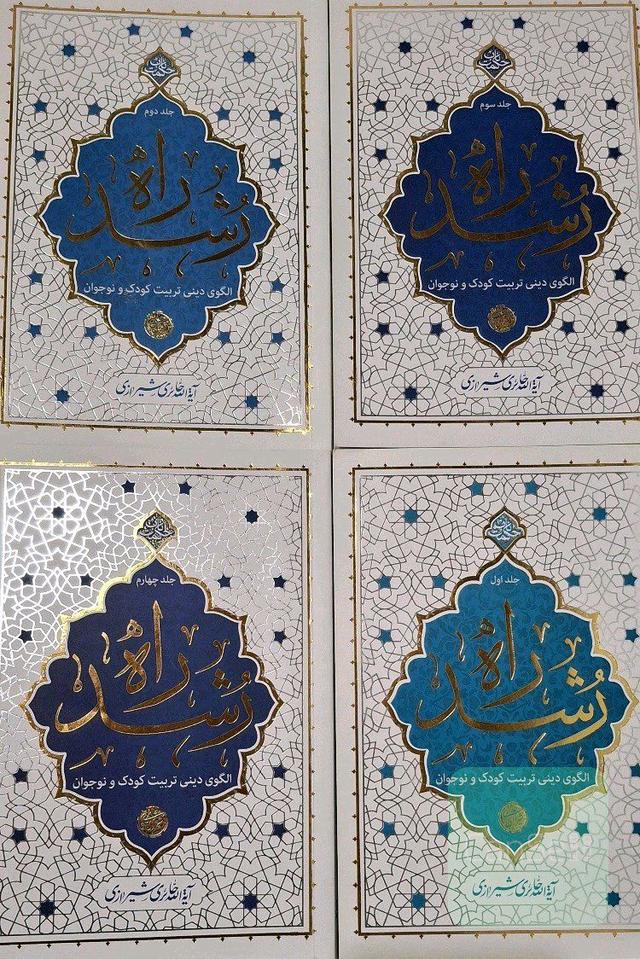 جلد دوم
راه
رشد
الگوی دینی تربیت کودک و نوجوان
آیة الله حائری شیرازی
جلد سوم
راه
رشد
الگوی دینی تربیت کودک و نوجوان
آیة الله حائری شیرازی
جلد چهارم
راه
رُشد
الگوی دینی تربیت کودک و نوجوان
آیة الله حائری شیرازی
جلد اول
راه
رُشد
الگوی دینی تربیت کودک و نوجوان
آیة الله حائری شیرازی